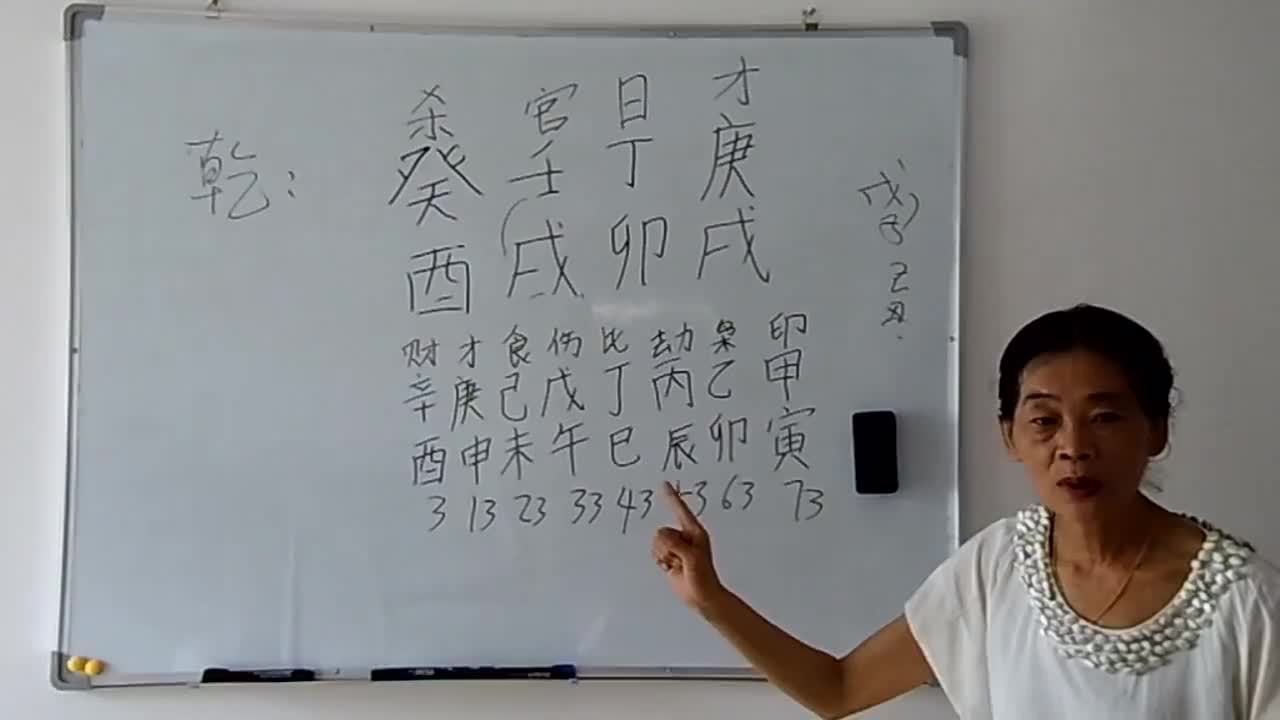 杀 官 日 才
乾: 癸 壬 丁 庚
酉 戌 卯 戌
财 才 食 伤 比 劫 枭 印
辛 庚 己 戊 丁 丙 乙 甲
酉 申 未 午 巳 辰 卯 寅
3 13 23 33 43 63 73
戊
己
丑